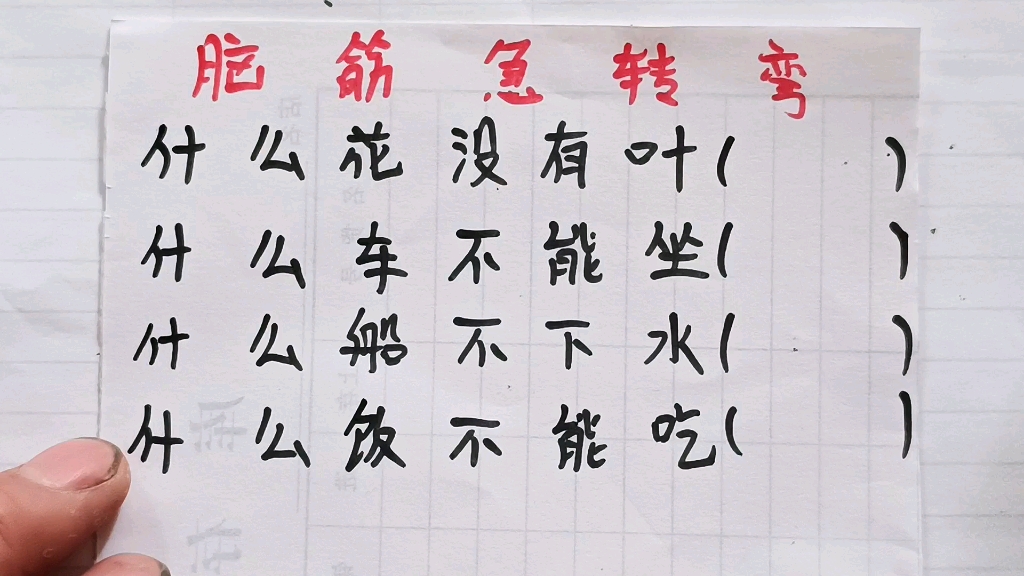 脑筋急转弯
什么花没有叶( )
什么车不能坐( )
什么船不下水( )
什么饭不能吃( )